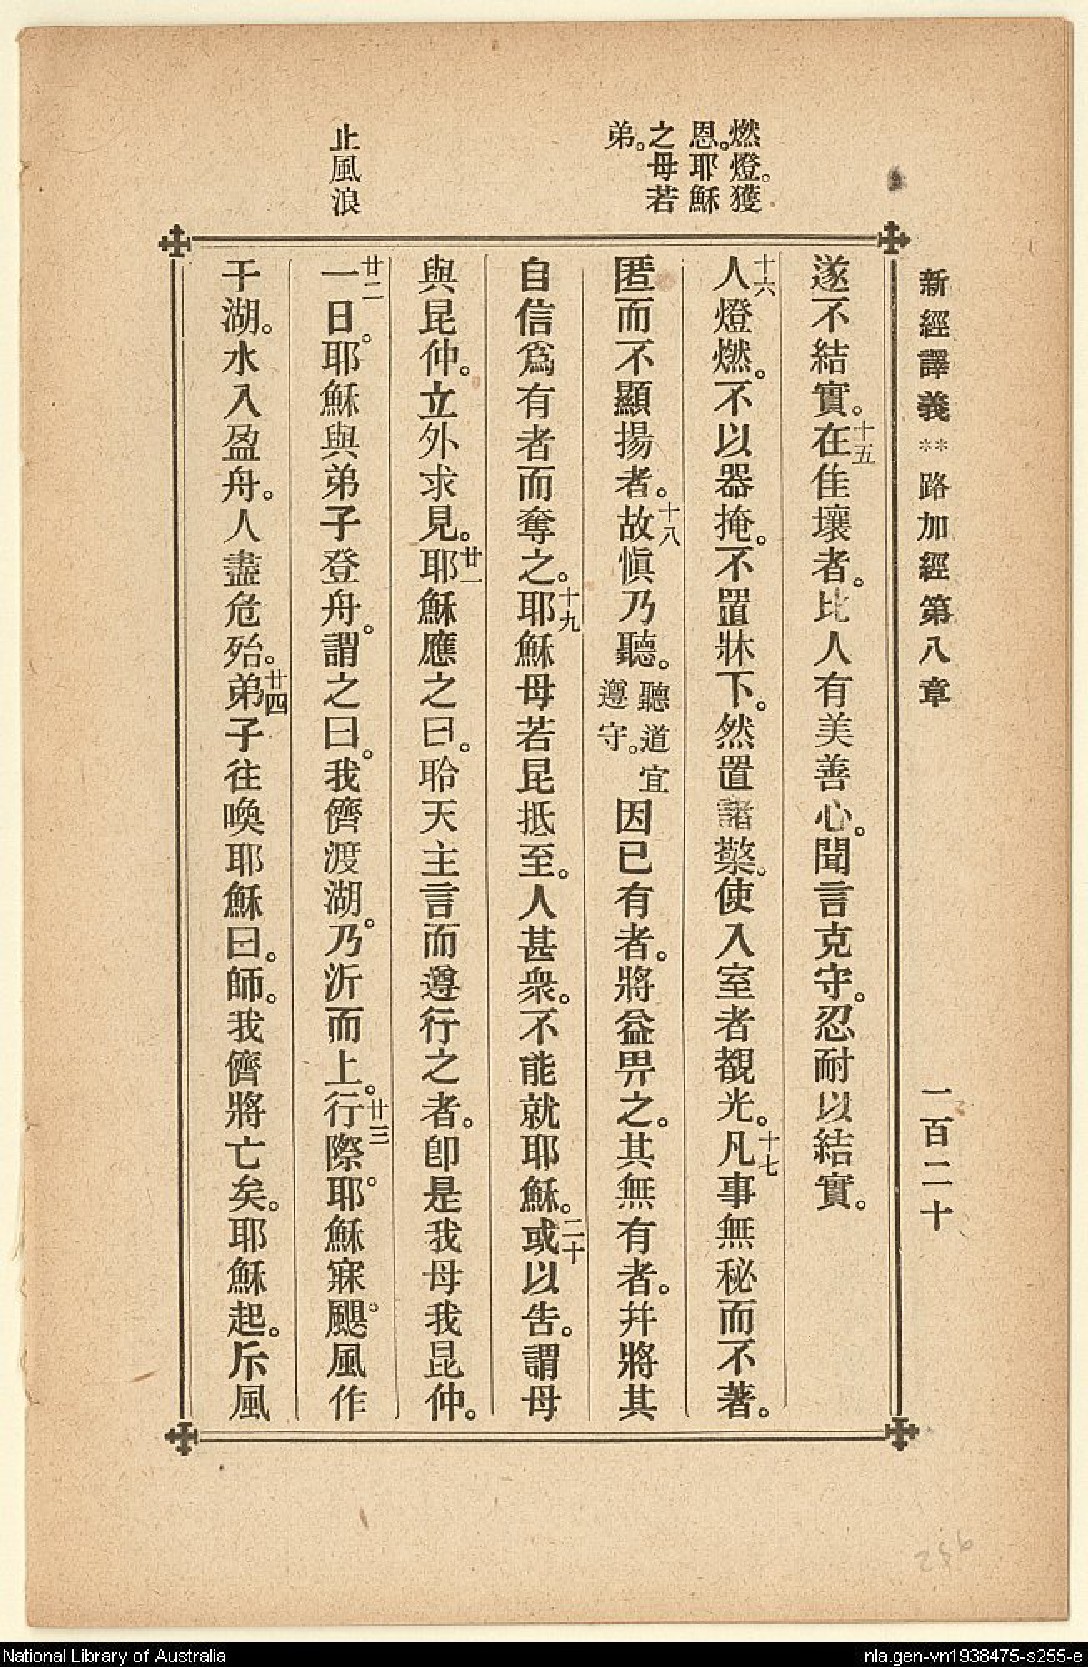 新經譯義**路加經第八章 一百二十
燃燈。獲
恩。耶穌
之母若
弟。
止風浪
遂不結實。十五在佳壤者。比人有美善心。聞言克守。忍耐以結實。
十六人燈燃。不以器掩。不置牀下。然置諸檠。使入室者觀光。十七凡事無秘而不著。
匿而不顯揚者。十八故愼乃聽。聽道宜遵守。因已有者。將益畀之。其無有者。幷將其
自信爲有者而奪之。十九耶穌母若昆抵至。人甚衆。不能就耶穌。二十或以告。謂母
與昆仲。立外求見。廿一耶穌應之曰。聆天主言而遵行之者。卽是我母我昆仲。
廿二一日。耶穌與弟子登舟。謂之曰。我儕渡湖。乃泝而上。廿三行際。耶穌寐。颶風作
于湖。水入盈舟。人盡危殆。廿四弟子往喚耶穌曰。師。我儕將亡矣。耶穌起。斥風
256
National Library of Australia
nla.gen-vn1938475-s255-e